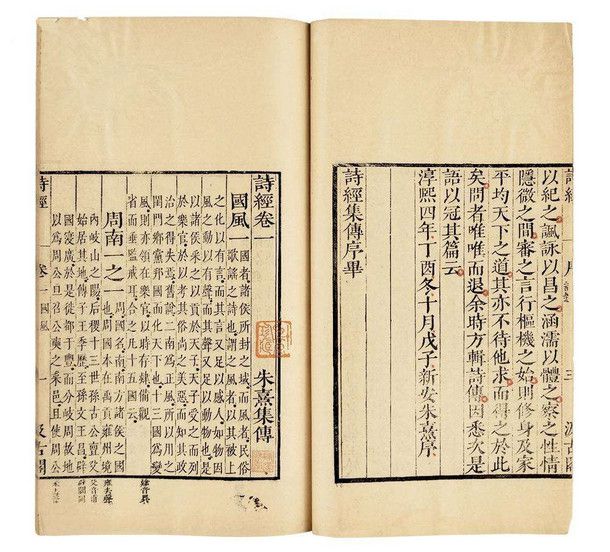 以紀之諷詠以昌之涵濡以體之察之性情
隱微之間審之言行樞機之始則修身及家
平均天下之道其亦不待他求而得之於此
矣問者唯唯而退余時方輯詩傳因悉次是
語以冠其篇云
淳熙四年丁酉冬十月戊子新安朱熹序
詩經集傳序畢
詩經卷一
朱熹集傳
國風一
國者諸侯所封之域而風者民俗
歌謠之詩也謂之風者以其被上
之化以有言而其言又足以感人如物因
風之動以有聲而其聲又足以動物也是
以諸侯采之以貢於天子天子受之而列
於樂官於以考其俗尚之美惡而知其政
治之得失焉舊說二南為正風所以用之
閨門鄉黨邦國而化天下也十三國為變
風則亦領在樂官以時存肄備觀
省而垂監戒耳合之凡十五國云
周南一之一
周國名南南方諸侯之國
也周國本在禹貢雍州境
內岐山之陽后稷十三世孫古公亶父
始居其地傳子王季歷至孫文王昌辟
國寖廣於是徙都于豐而分岐周故地
以為周公旦召公奭之采邑且使周公
詩經 卷一國風 一 汲古閣